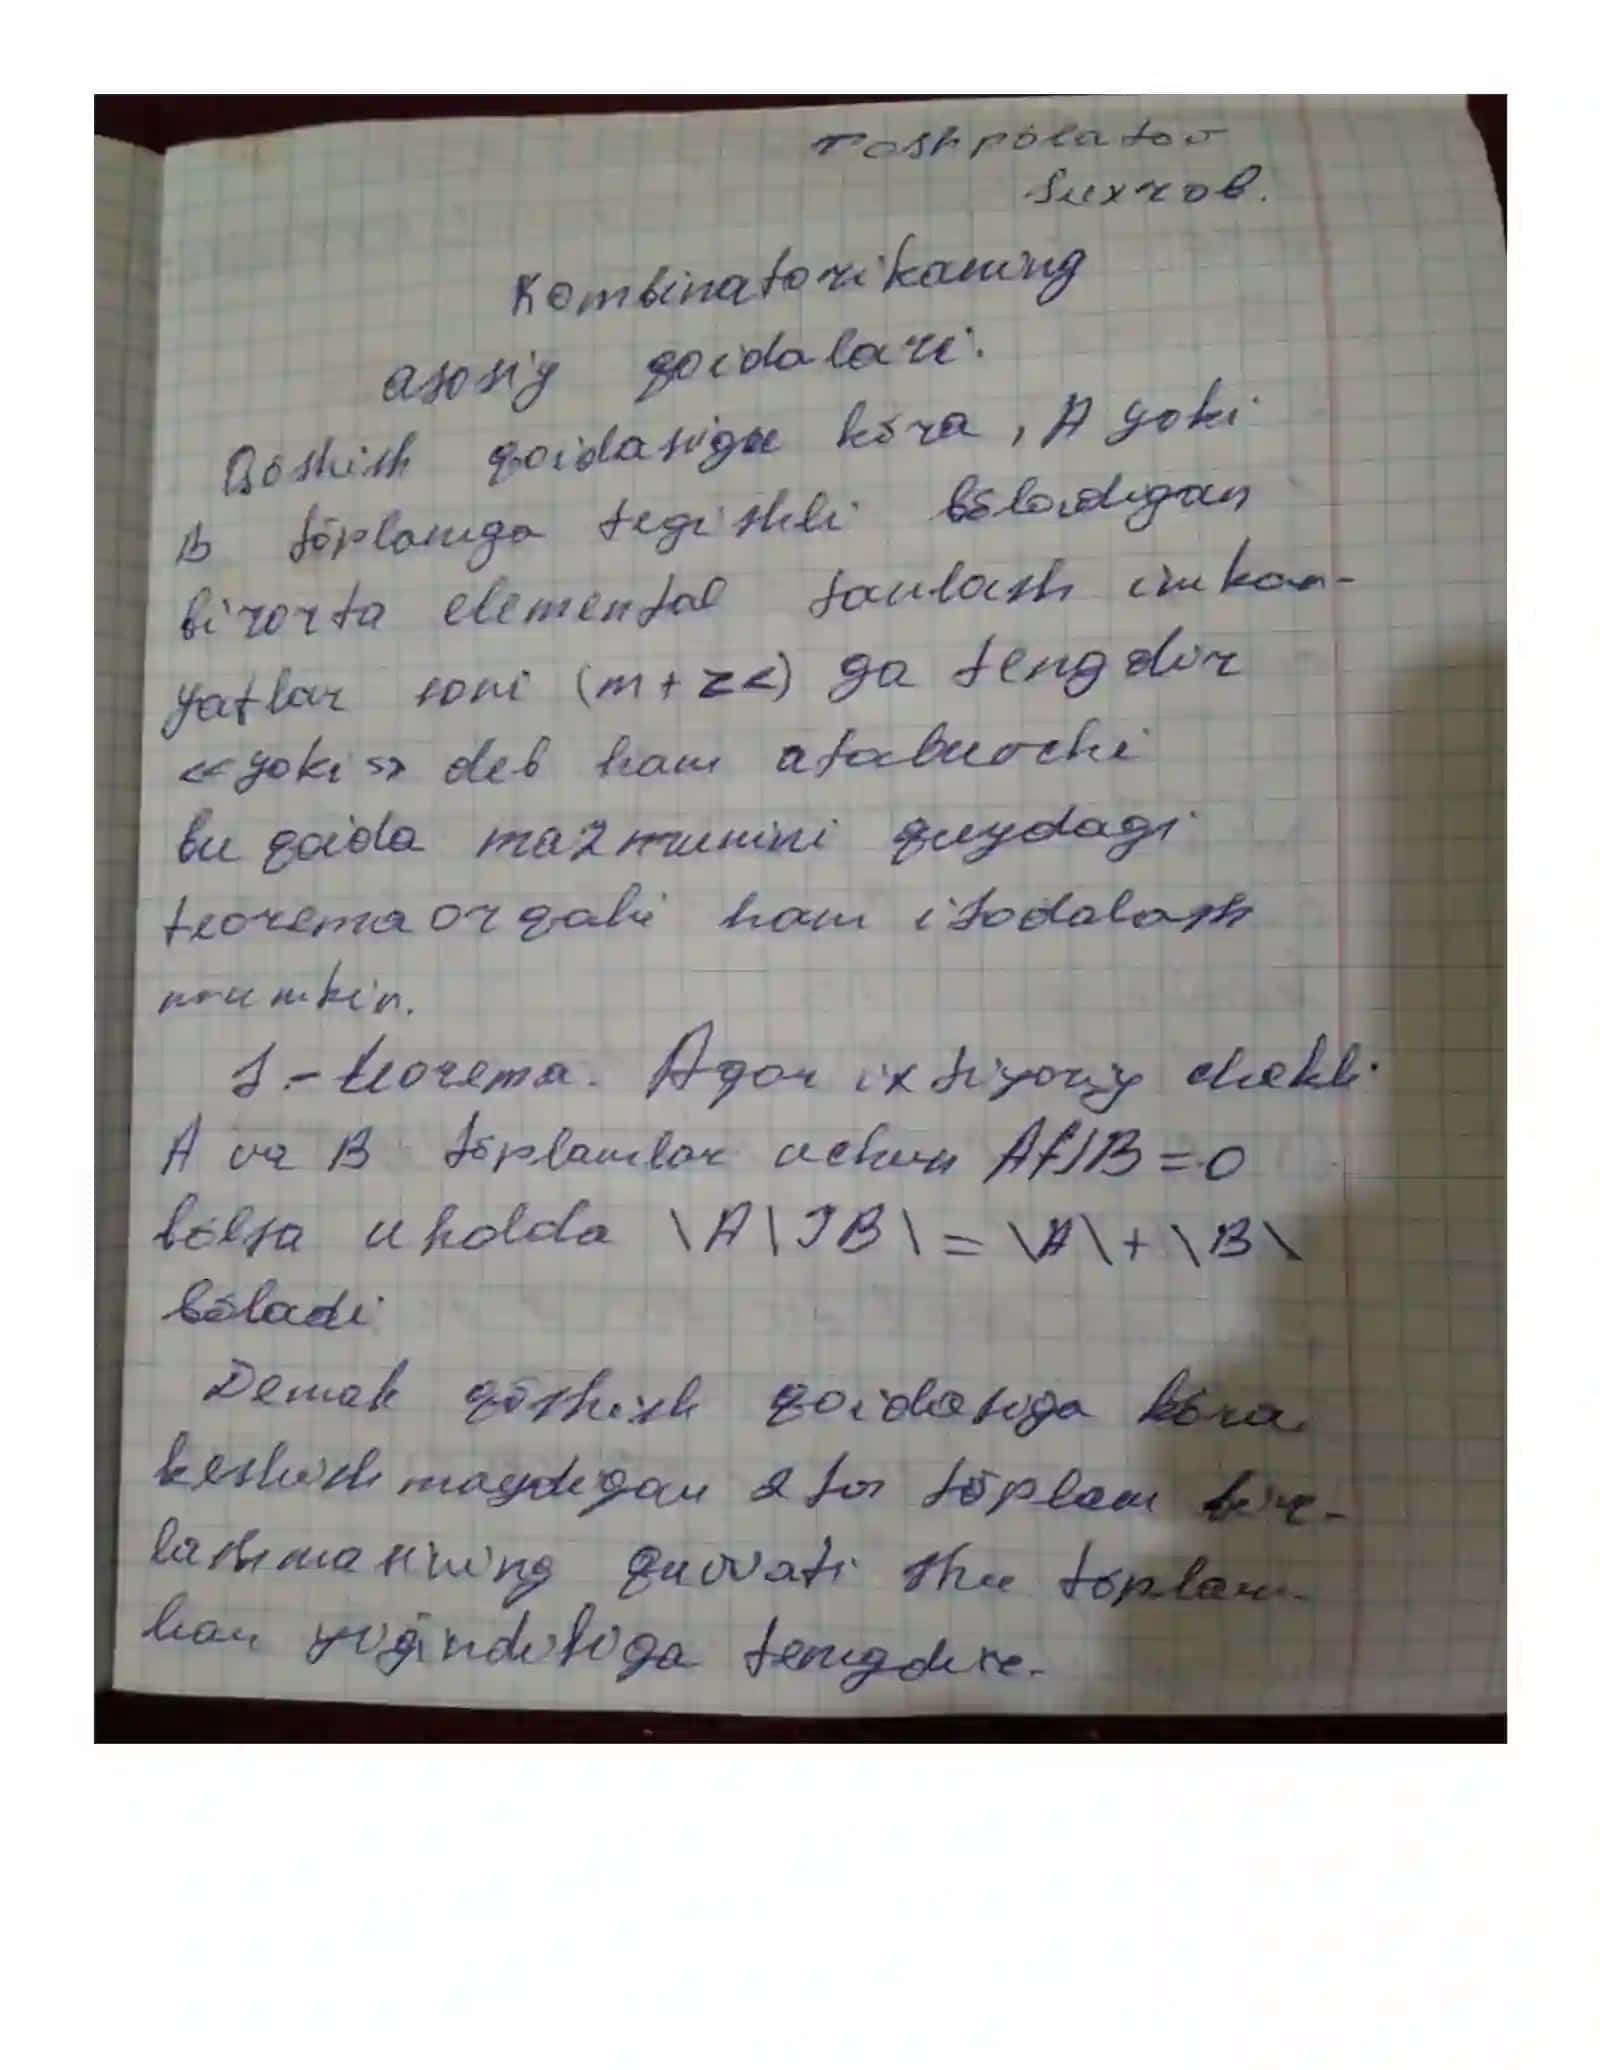 Toshpõlatov
Suxrob.
Kombinatorikaning
asosiy qoidalari.
Qõshish qoidasiga kõra, A yoki
B tõplamga tegishli bõladigan
birorta elemental tanlash imkan-
yatlar soni (m+z<) ga tengdir
«yoki» deb ham ataluvchi
bu qoida mazmunini quydagi
teorema orqali ham ifodalash
mumkin.
1.-teorema. Agar ixtiyoriy chekli
A va B tõplamlar uchun AflB=0
bõlsa u holda \A\JB\=\A\+\B\
bõladi
Demak qõshish qoidasiga kõra
keshishmaydigan 2 ta tõplam bir-
lashmasining quvvati shu tõplam-
lar yiğindisiga tengdir.